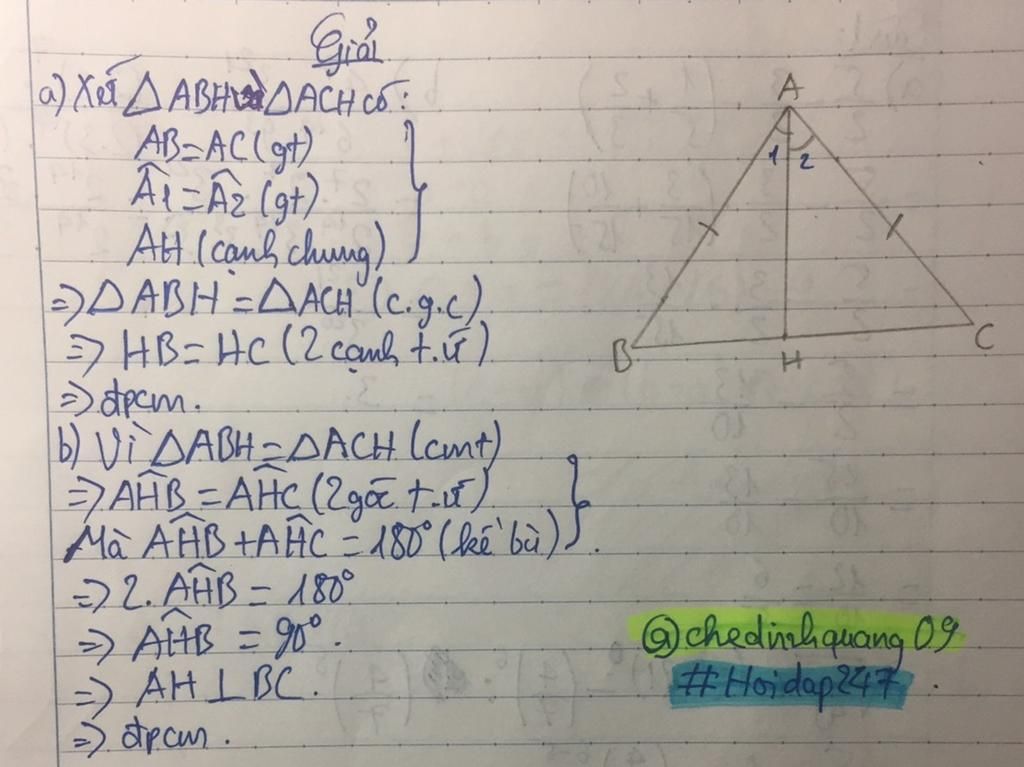 Giải
a) Xét △ABH và △ACH có:
AB = AC (gt)
Â1 = Â2 (gt)
AH (cạnh chung)
=> △ABH = △ACH (c.g.c)
=> HB = HC (2 cạnh t.ứ)
=> đpcm.
b) Vì △ABH = △ACH (cmt)
=> AĤB = AĤC (2 góc t.ứ)
Mà AĤB + AĤC = 180° (kề bù).
=> 2. AĤB = 180°
=> AĤB = 90°.
=> AH ⊥ BC.
=> đpcm.
A
1 2
B H C
@chedinhquang09
#Hoidap247.